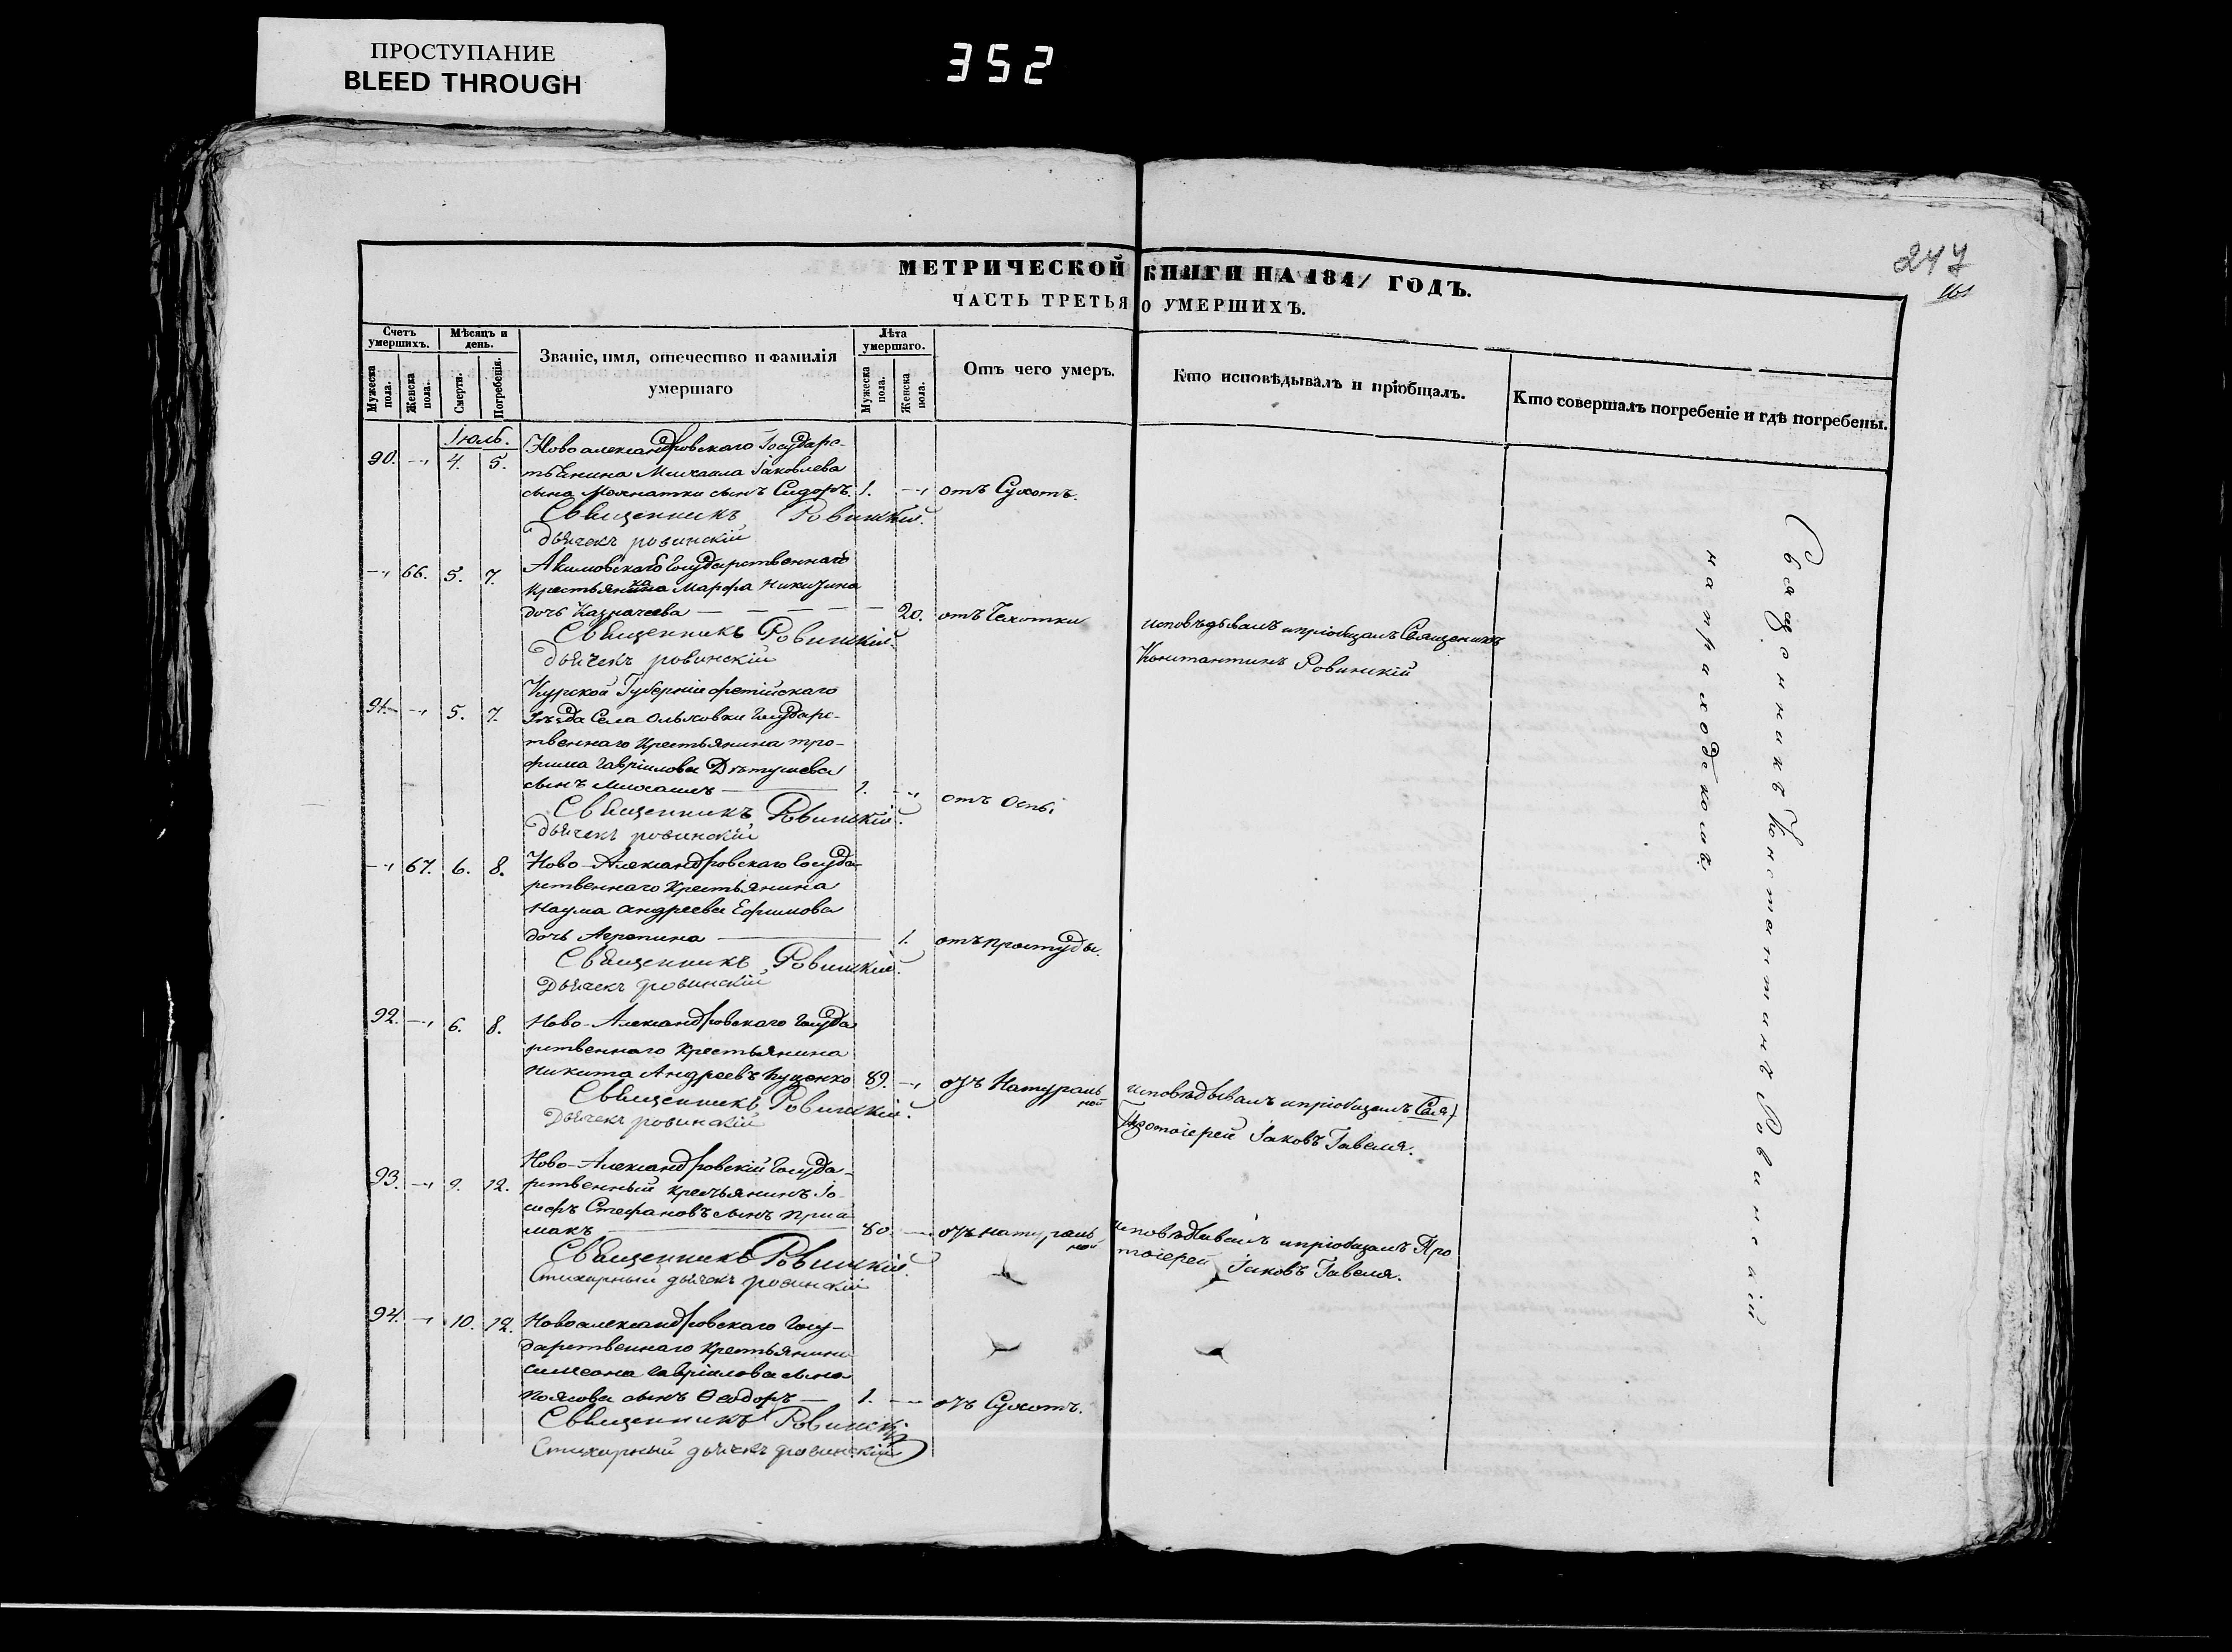 ПРОСТУПАНИЕ
BLEED THROUGH
352
247
МЕТРИЧЕСКОЙ КНИГИ НА 1841 ГОДЪ.
ЧАСТЬ ТРЕТЬЯ О УМЕРШИХЪ.
Счетъ умершихъ.
Мужеска пола.
Женска пола.
Мѣсяцъ и день.
Смерти.
Погребенія.
Званіе, имя, отечество и фамилія умершаго
Лѣта умершаго.
Мужеска пола.
Женска пола.
Отъ чего умеръ.
Кто исповѣдывалъ и пріобщалъ.
Кто совершалъ погребеніе и гдѣ погребены.
Іюль.
90. 4. 5. Новоалександровскаго Государс-
Михаила Іаковлева
сына Мохнатки сынъ Сидоръ. 1. отъ Сухотъ.
Священникъ Ровинскій.
Дьячекъ ровинскій
66. 5. 7. Акимовскаго Государственнаго
Марфа Никитина
дочь Казначеева 20. отъ Чахотки
исповѣдывалъ и пріобщалъ Священникъ
Константинъ Ровинскій
Священникъ Ровинскій.
Дьячекъ ровинскій
91. 5. 7. Курской Губерніи
Уѣзда Села Ольховки Государс-
твеннаго Крестьянина Тро-
фима Гавріилова Дѣтушева
сынъ Михаилъ 1. отъ Оспы
Священникъ Ровинскій.
Дьячекъ ровинскій
67. 6. 8. Ново-Александровскаго Госуда-
рственнаго Крестьянина
Наума Андреева Ефимова
дочь Агрипина 1. отъ простуды.
Священникъ Ровинскій.
Дьячекъ ровинскій
92. 6. 8. Ново-Александровскаго Госуда
рственнаго Крестьянина
Никита Андреевъ Куценко 89. отъ Натураль
ной
исповѣдывалъ и пріобщалъ
Протоіерей Іаковъ Гавеля.
Священникъ Ровинскій.
Дьячекъ ровинскій
93. 9. 12. Ново-Александровскій Госуда-
рственный крестьянинъ Іо-
сифъ Стефановъ сынъ Прий
макъ 80. отъ натураль
ной
исповѣдывалъ и пріобщалъ Про
тоіерей Іаковъ Гавеля.
Священникъ Ровинскій.
Стихарный дьячекъ ровинскій
94. 10. 12. Новоалександровскаго Госу-
дарственнаго Крестьянина
Симеона Гавріилова сына
сынъ Ѳеодоръ 1. отъ Сухотъ.
Священникъ Ровинскій
Стихарный дьячекъ ровинскій
Священникъ Константинъ Ровинскій
на приходскомъ